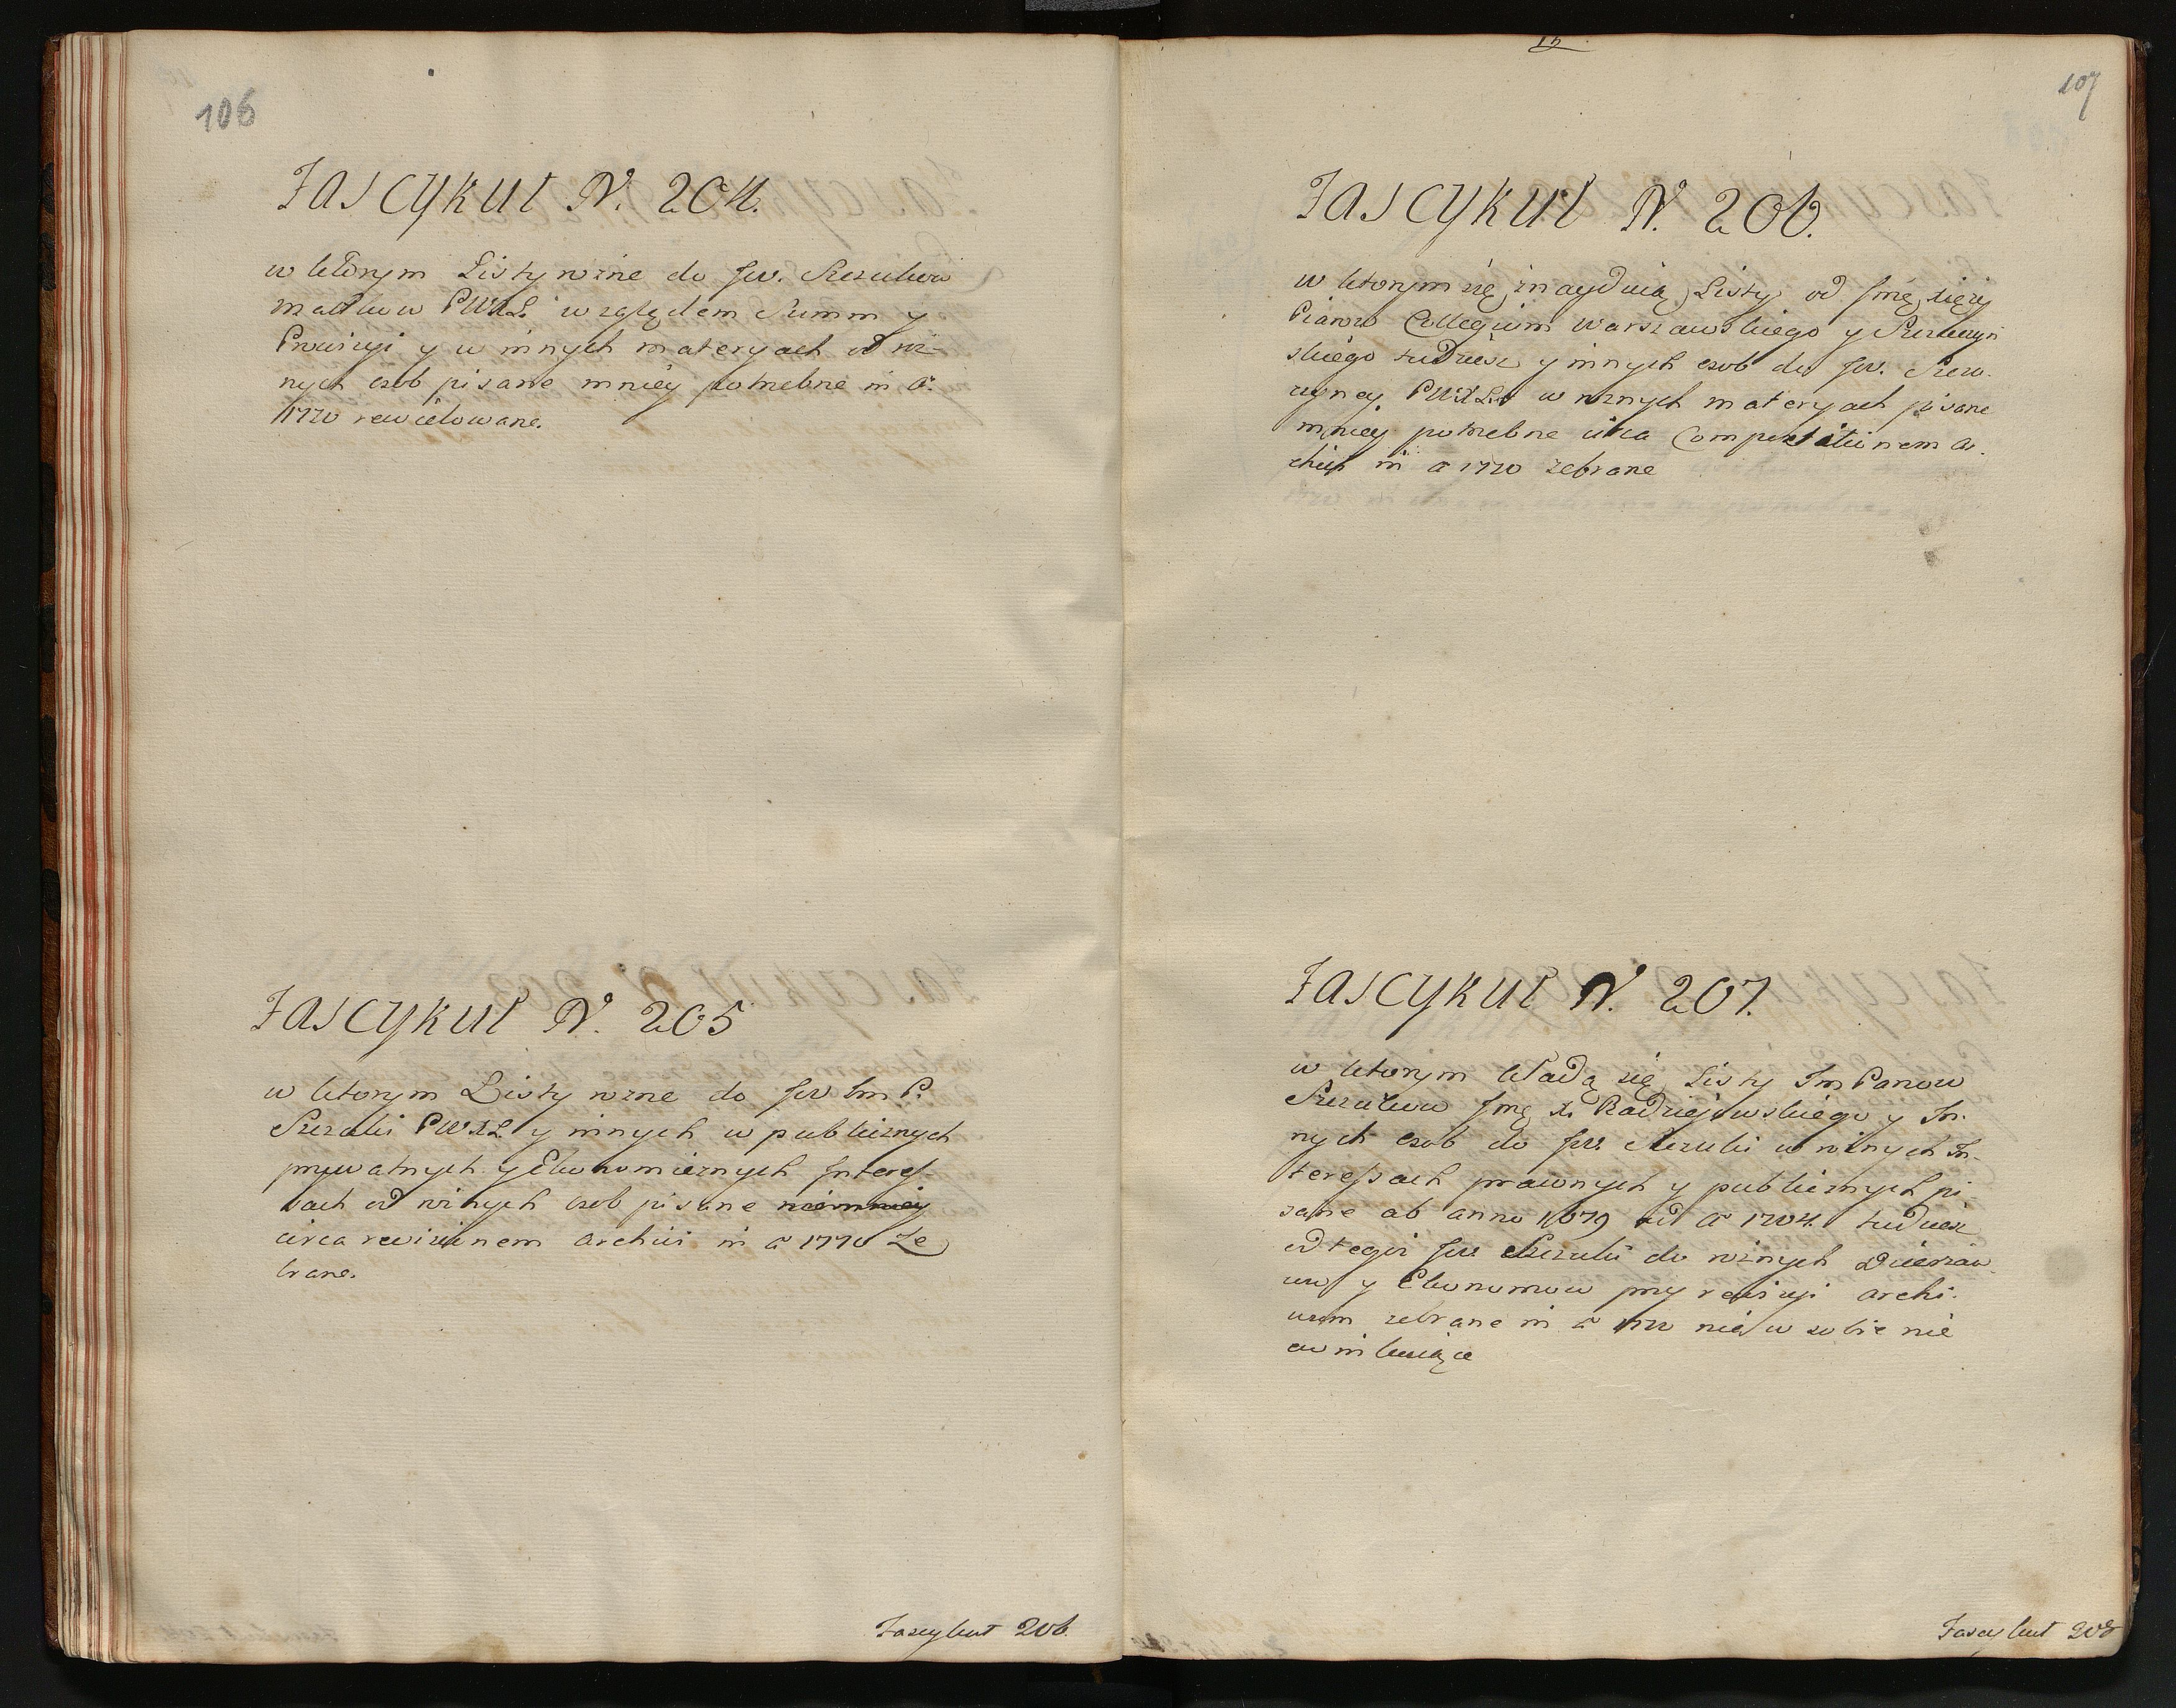 106
Fascykuł N. 204.
w ktorym Listy rozne do Jw. Szczukow
Małkow PWXL względem Summ y
Prowizyi y w innych materyach od roz-
nych osob pisane mniey potrzebne in Aō
1770 rewidowane.
Fascykuł N. 205
w ktorym Listy rozne do Jw Im P.
Szczuki PWXL y innych w publicznych
prywatnych y Ekonomicznych Interes-
sach od roznych osob pisane niemniey
circa revisionem Archivi in aō 1770 ze
brane.
Fascykuł 206.
107
Fascykuł N. 206.
w ktorym się znayduią Listy od Jmę. xięży
Piarow Collegium Warszawskiego y Szczuczyń
skiego tudziesz y innych osob do Jw. Szczu-
czyney PWXL w roznych materyach pisane
mniey potrzebne circa Comportationem Ar-
chivi in aō 1770 zebrane
Fascykuł N. 207.
w ktorym kładą się Listy Im Panow
Szczukow Jmę x. Radziejowskiego y In-
nych osob do Jw. Szczuki w roznych In-
teressach prawnych y publicznych pi-
sane ab anno 1679 ad aō 1704 tudziesz
od tegoż Jw. Szczuki do roznych Dzierzaw-
cow y Ekonomow przy rewizyi Archi-
wum zebrane in aō 1770 nic w sobie nie
zamykaiące
Fascykuł 208